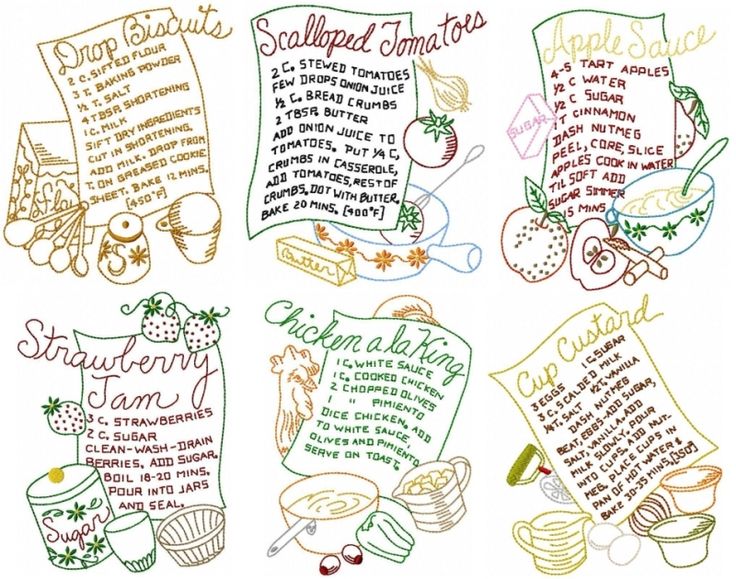 Drop Biscuits
2 C. SIFTED FLOUR
3 T. BAKING POWDER
½ T. SALT
4 TBSP. SHORTENING
1 C. MILK
SIFT DRY INGREDIENTS
CUT IN SHORTENING.
ADD MILK. DROP FROM
T. ON GREASED COOKIE
SHEET. BAKE 12 MINS.
[450°F]
flo
S
Scalloped Tomatoes
2 C. STEWED TOMATOES
FEW DROPS ONION JUICE
½ C. BREAD CRUMBS
2 TBSP. BUTTER
ADD ONION JUICE TO
TOMATOES. PUT ¼ C,
CRUMBS IN CASSEROLE,
ADD TOMATOES, REST OF
CRUMBS, DOT WITH BUTTER.
BAKE 20 MINS. [400°F]
Butter
Apple Sauce
4-5 TART APPLES
½ C WATER
½ C SUGAR
1 T CINNAMON
DASH NUTMEG
PEEL, CORE, SLICE
APPLES COOK IN WATER
'TIL SOFT ADD
SUGAR SIMMER
15 MINS
SUGAR
Strawberry
Jam
3 C. STRAWBERRIES
2 C. SUGAR
CLEAN-WASH-DRAIN
BERRIES, ADD SUGAR.
BOIL 18-20 MINS.
POUR INTO JARS
AND SEAL.
Sugar
Chicken a la King
1 C. WHITE SAUCE
1 C. COOKED CHICKEN
2 CHOPPED OLIVES
1 " PIMIENTO
DICE CHICKEN, ADD
TO WHITE SAUCE,
OLIVES AND PIMIENTO
SERVE ON TOAST.
Cup Custard
3 EGGS 1 C. SUGAR
2 C. SCALDED MILK
¼ T. SALT ½ T. VANILLA
DASH NUTMEG
BEAT, EGGS-ADD SUGAR,
SALT, VANILLA-ADD
MILK SLOWLY, POUR
INTO CUPS. ADD NUT-
MEG. PLACE CUPS IN
PAN OF HOT WATER &
BAKE 30-35 MINS. [350°]